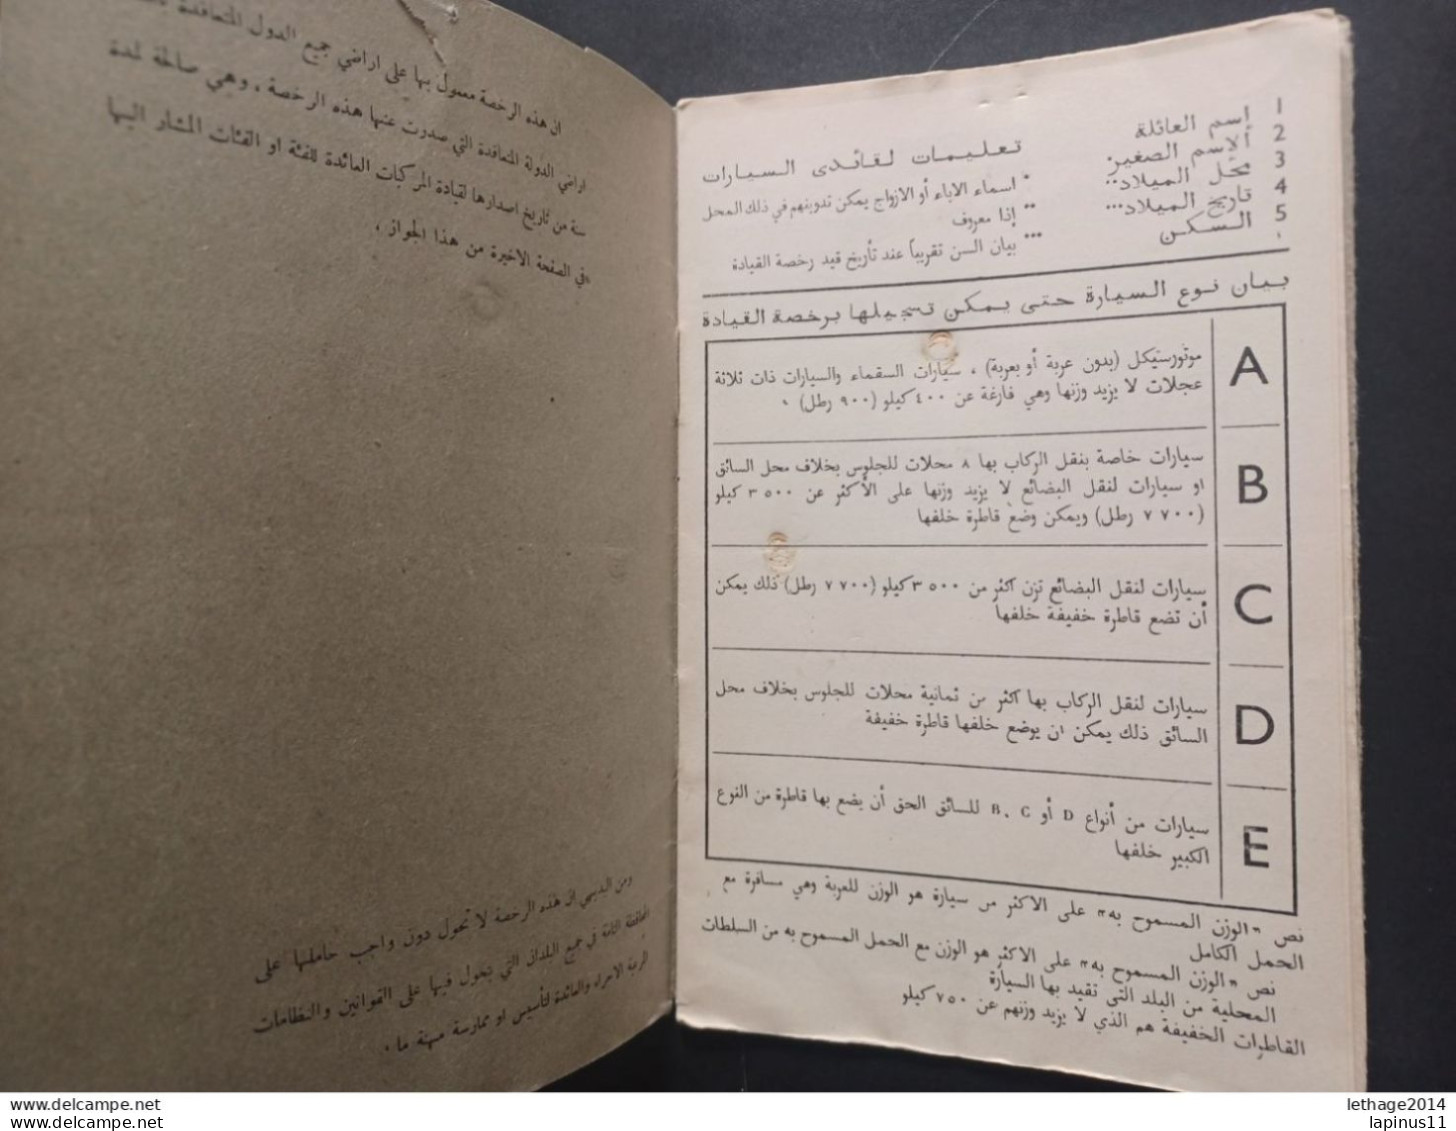 ان هذه الرخصة معمول بها على اراضي جميع الدول المتعاقدة
اراضي الدولة المتعاقدة التي صدرت عنها هذه الرخصة ، وهي صالحة لمدة
سنة من تاريخ اصدارها لقيادة المركبات العائدة للفئة او الفئات المشار اليها
في الصفحة الاخيرة من هذا الجواز .
ومن البديهي ان هذه الرخصة لا تحول دون واجب حاملها على
المحافظة التامة في جميع البلدان التي يتجول فيها على القوانين والنظامات
المرعية الاجراء والعائدة لتأسيس او ممارسة مهنة ما .
1 إسم العائلة
2 الاسم الصغير*
3 محل الميلاد**
4 تاريخ الميلاد***
5 السكن
تعليمات لقائدى السيارات
* اسماء الاباء أو الازواج يمكن تدوينهم في ذلك المحل
** إذا معروف
*** بيان السن تقريباً عند تأريخ قيد رخصة القيادة
بيان نوع السيارة حتى يمكن تسجيلها برخصة القيادة
A
موتورسيكل (بدون عربة أو بعربة) ، سيارات السقماء والسيارات ذات ثلاثة
عجلات لا يزيد وزنها وهي فارغة عن ٤٠٠ كيلو (٩٠٠ رطل) ،
B
سيارات خاصة بنقل الركاب بها ٨ محلات للجلوس بخلاف محل السائق
او سيارات لنقل البضائع لا يزيد وزنها على الأكثر عن ٣٥٠٠ كيلو
(٧٧٠٠ رطل) ويمكن وضع قاطرة خلفها
C
سيارات لنقل البضائع تزن اكثر من ٣٥٠٠ كيلو (٧٧٠٠ رطل) ذلك يمكن
أن تضع قاطرة خفيفة خلفها
D
سيارات لنقل الركاب بها اكثر من ثمانية محلات للجلوس بخلاف محل
السائق ذلك يمكن ان يوضع خلفها قاطرة خفيفة
E
سيارات من أنواع B، C أو D للسائق الحق أن يضع بها قاطرة من النوع
الكبير خلفها
نص "الوزن المسموح به" على الاكثر من سيارة هو الوزن للعربة وهي مسافرة مع
الحمل الكامل
نص "الوزن المسموح به" على الاكثر هو الوزن مع الحمل المسموح به من السلطات
المحلية من البلد التى تقيد بها السيارة
القاطرات الخفيفة هم الذي لا يزيد وزنهم عن ٧٥٠ كيلو
lethage2014
lapinus11
delcampe.net